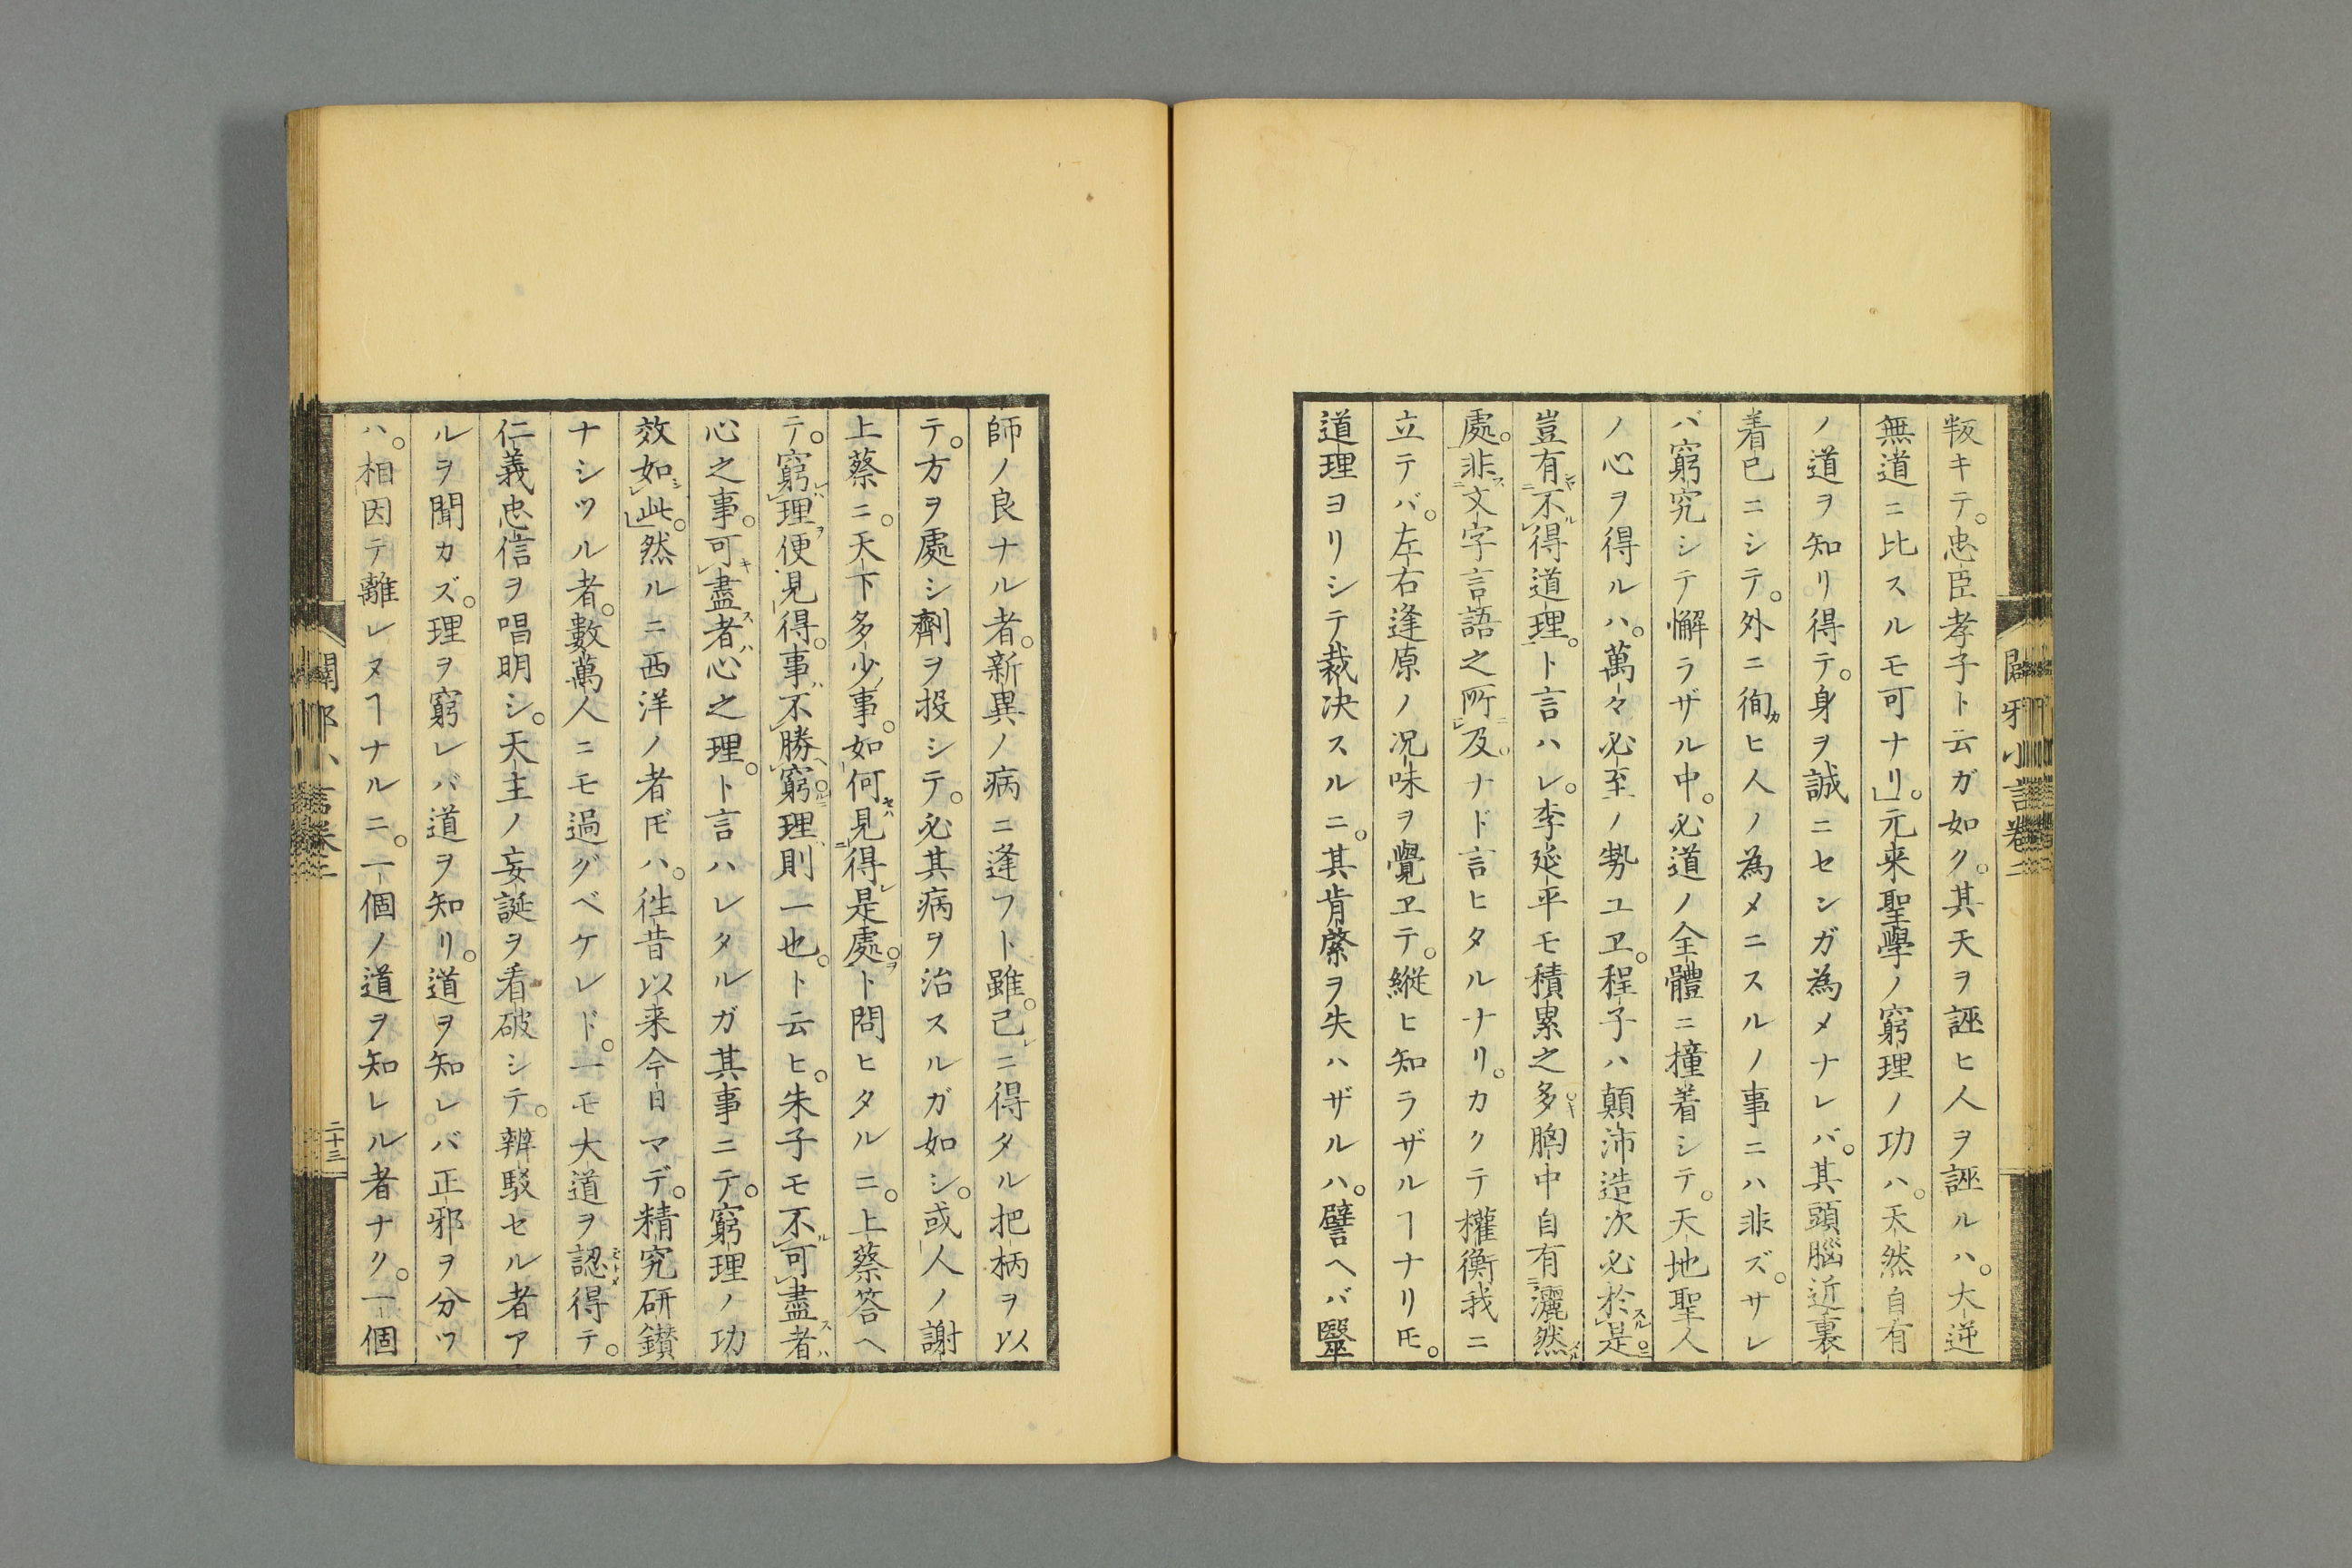 叛キテ。忠臣孝子ト云ガ如ク。其天ヲ誣ヒ人ヲ誣ルハ。大逆
無道ニ比スルモ可ナリ」。元来聖學ノ窮理ノ功ハ。天然自有
ノ道ヲ知リ得テ。身ヲ誠ニセンガ為メナレバ。其頭腦近裏
着已ニシテ。外ニ徇ヒ人ノ為メニスルノ事ニハ非ズ。サレ
バ窮究シテ懈ラザル中。必道ノ全體ニ撞着シテ。天地聖人
ノ心ヲ得ルハ。萬々必至ノ勢ユヱ。程子ハ顛沛造次必於是
豈有不得道理。ト言ハレ。李延平モ積累之多胸中自有灑然
處。非文字言語之所及。ナド言ヒタルナリ。カクテ權衡我ニ
立テバ。左右逢原ノ況味ヲ覺ヱテ。縱ヒ知ラザルヿナリトモ。
道理ヨリシテ裁決スルニ。其肯綮ヲ失ハザルハ。譬ヘバ醫
闢邪小言卷二
師ノ良ナル者。新異ノ病ニ逢フト雖。己ニ得タル把柄ヲ以
テ。方ヲ處シ劑ヲ投シテ。必其病ヲ治スルガ如シ。或人ノ謝
上蔡ニ。天下多少事。如何見得是處。ト問ヒタルニ。上蔡答ヘ
テ。窮理便見得。事不勝窮。理則一也。ト云ヒ。朱子モ不可盡者
心之事。可盡者心之理。ト言ハレタルガ其事ニテ。窮理ノ功
效如此。然ルニ西洋ノ者𪜈ハ。徃昔以来今日マデ。精究研鑚
ナシツル者。數萬人ニモ過グベケレド。一モ大道ヲ認得テ。
仁義忠信ヲ唱明シ。天主ノ妄誕ヲ看破シテ。辨駁セル者ア
ルヲ聞カズ。理ヲ窮レバ道ヲ知リ。道ヲ知レバ正邪ヲ分ツ
ハ。相因テ離レヌヿナルニ。一個ノ道ヲ知レル者ナク。一個
闢邪小言卷二
二十三